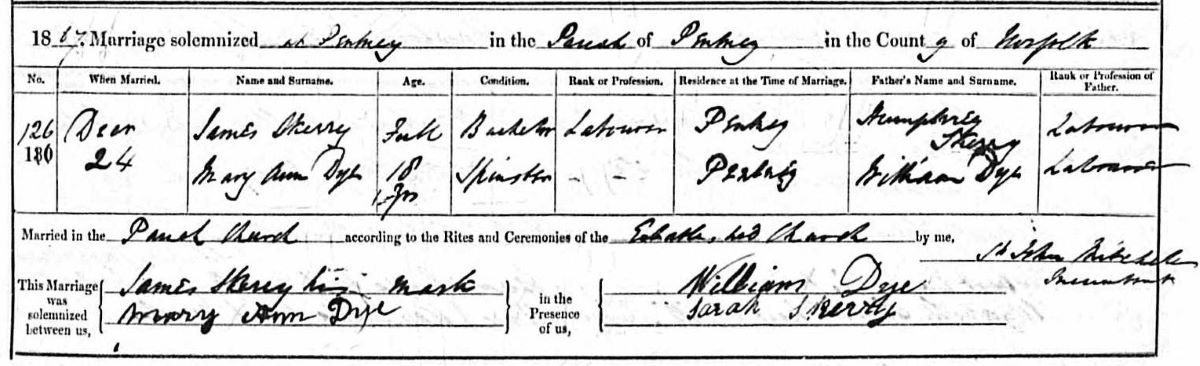 1867. Marriage solemnized at Pentney in the Parish of Pentney in the County of Norfolk
No. When Married. Name and Surname. Age. Condition. Rank or Profession. Residence at the Time of Marriage. Father's Name and Surname. Rank or Profession of Father.
126 Decr James Skerry Full Bachelor Labourer Pentney Humphrey Skerry Labourer
130 24 Mary Ann Dye 18 yrs Spinster - - Pentney William Dye Labourer
Married in the Parish Church according to the Rites and Ceremonies of the Established Church by me,
St John Mitchell
Incumbent
This Marriage was solemnized between us,
James Skerry his mark
Mary Ann Dye
in the Presence of us,
William Dye
Sarah Skerry